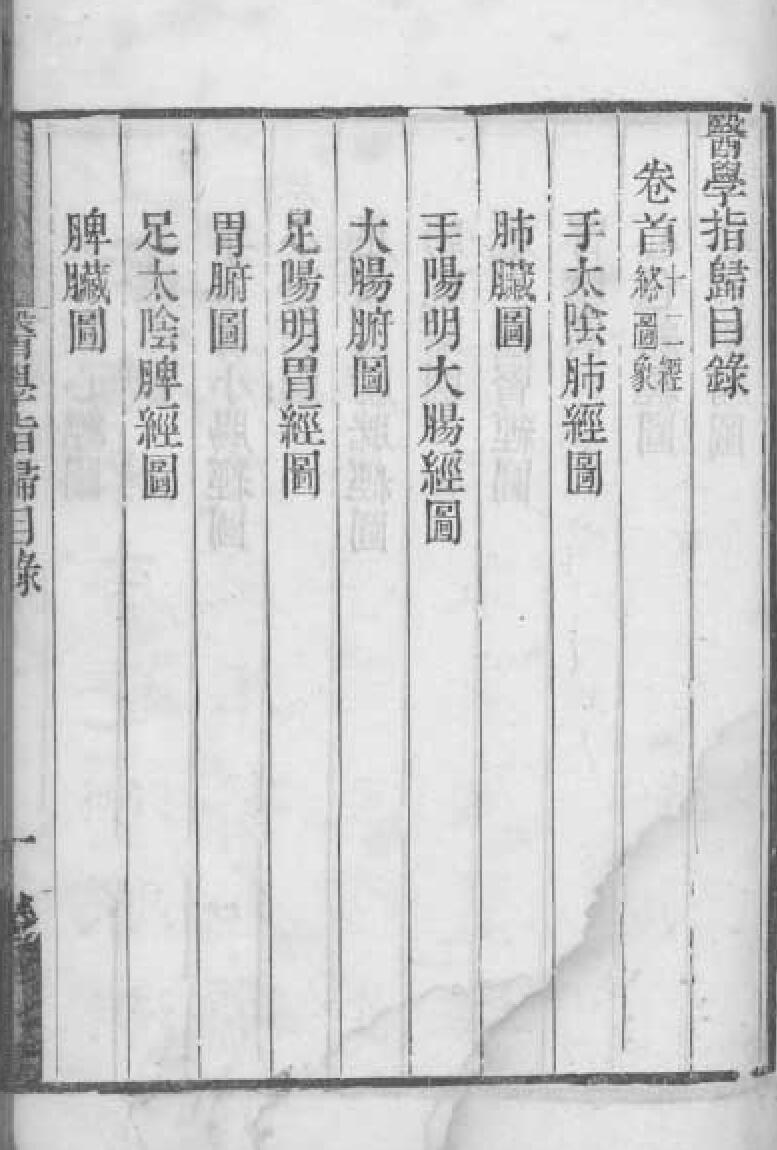 醫學指歸目錄
卷首十二經絡圖象
手太陰肺經圖
肺臟圖
手陽明大腸經圖
大腸腑圖
足陽明胃經圖
胃腑圖
足太陰脾經圖
脾臟圖
醫學指歸目錄
一